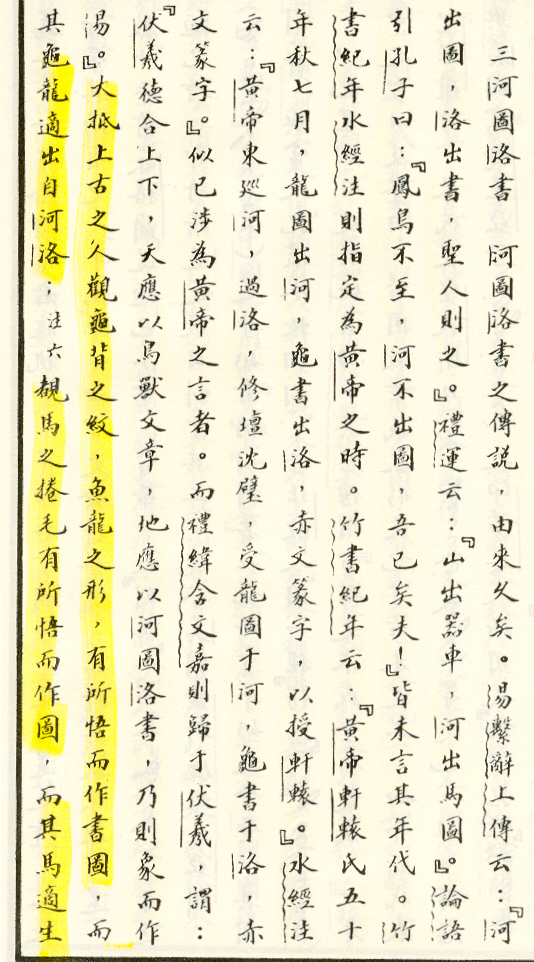 三河圖洛書　河圖洛書之傳說，由來久矣。易繫辭上傳云：『河
出圖，洛出書，聖人則之。』禮運云：『山出器車，河出馬圖。』論語
引孔子曰：『鳳鳥不至，河不出圖，吾已矣夫！』皆未言其年代。竹
書紀年水經注則指定為黃帝之時。竹書紀年云：『黃帝軒轅氏五十
年秋七月，龍圖出河，龜書出洛，赤文篆字，以授軒轅。』水經注
云：『黃帝東巡河，過洛，修壇沈璧，受龍圖于河，龜書于洛，赤
文篆字。』似已涉為黃帝之言者。而禮緯含文嘉則歸于伏羲，謂：
『伏羲德合上下，天應以鳥獸文章，地應以河圖洛書，乃則象而作
易。』大抵上古之人觀龜背之紋，魚龍之形，有所悟而作書圖，而
其龜龍適出自河洛；注六觀馬之捲毛有所悟而作圖，而其馬適生